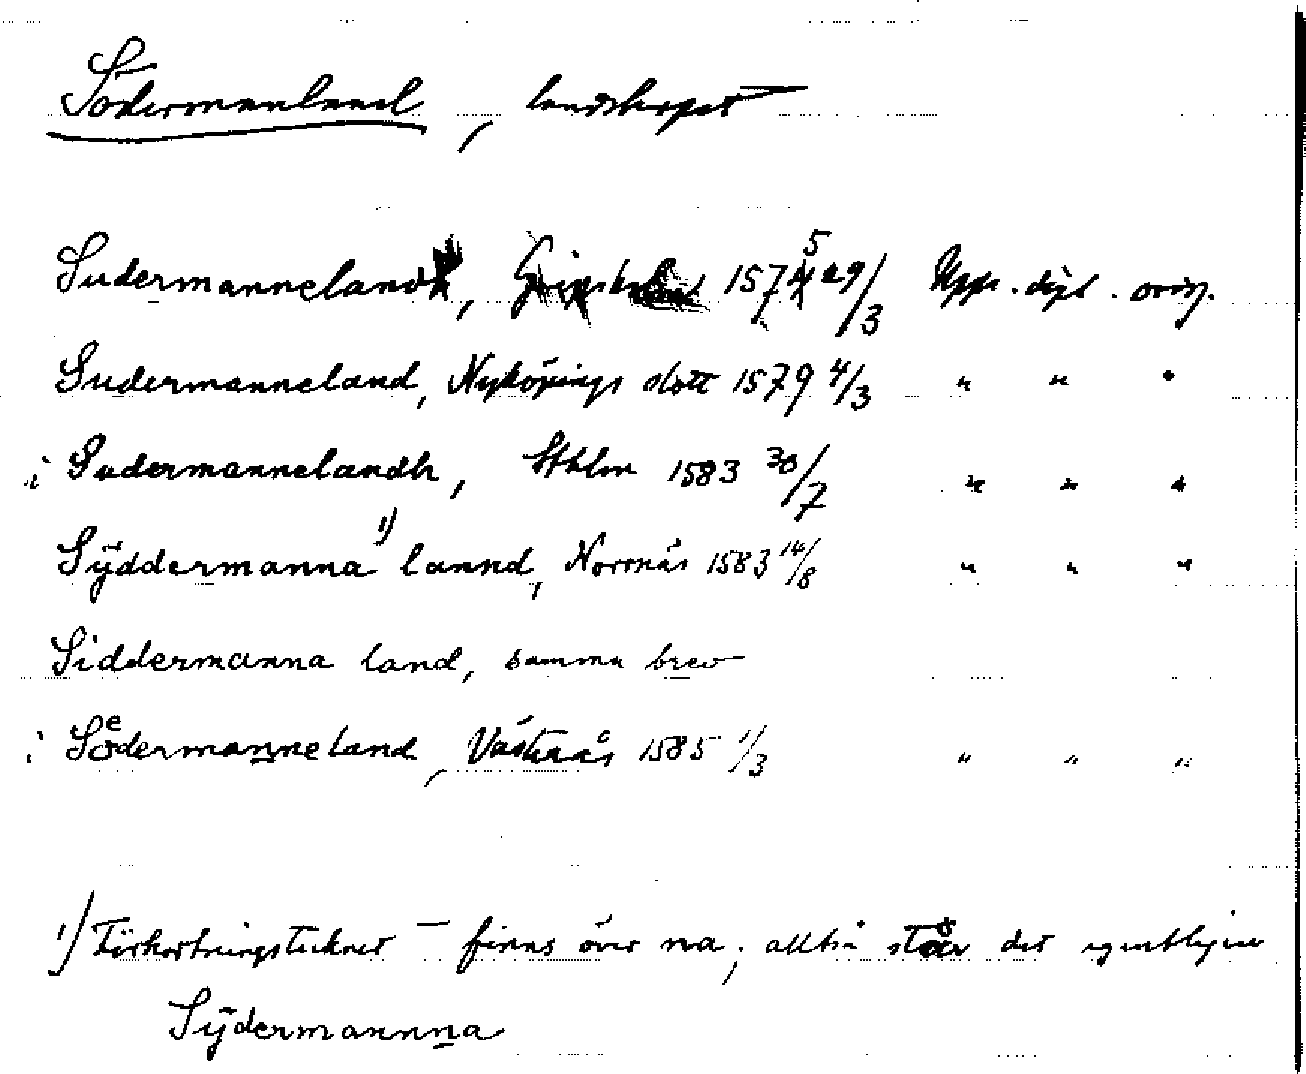 Södermanland, landskapet
Sudermanneland, 1575 29/3 Upps. dipl. orig.
Sudermanneland, Nyköpings slott 1579 4/3 " " "
i Sudermannelandh, Sthlm 1583 30/7 " " "
Sÿddermanna 1) lannd, Norrnäs 1583 14/8 " " "
Siddermanna land, samma brev
i Soͤdermanneland, Västerås 1585 1/3 " " "
1) Förkortningstecknet – finns över na; alltså står det egentligen
Sÿdermannna